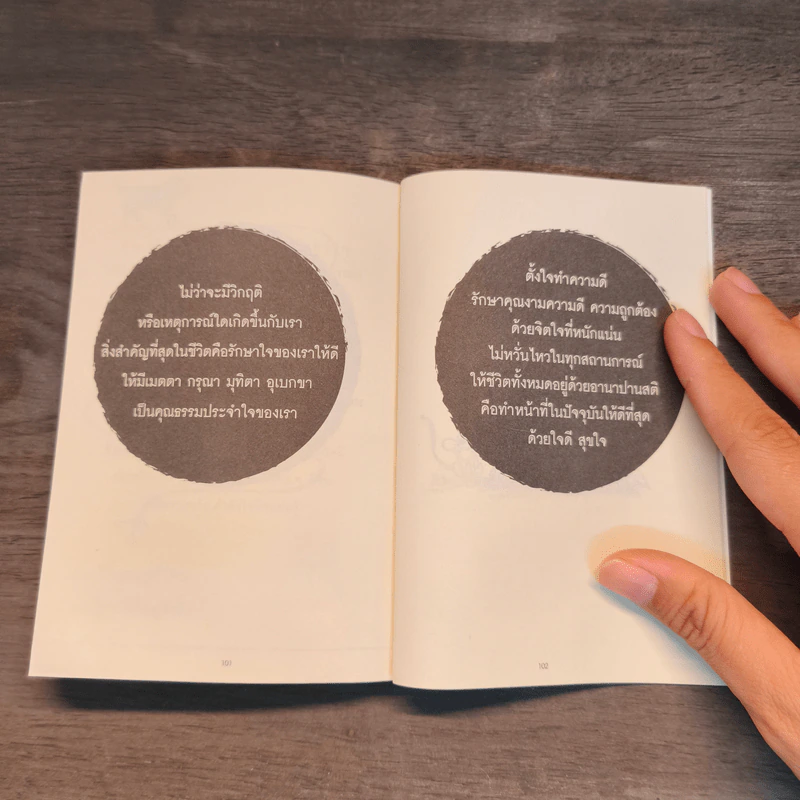 ไม่ว่าจะมีวิกฤติ
หรือเหตุการณ์ใดเกิดขึ้นกับเรา
สิ่งสำคัญที่สุดในชีวิตคือรักษาใจของเราให้ดี
ให้มีเมตตา กรุณา มุทิตา อุเบกขา
เป็นคุณธรรมประจำใจของเรา
101
ตั้งใจทำความดี
รักษาคุณงามความดี ความถูกต้อง
ด้วยจิตใจที่หนักแน่น
ไม่หวั่นไหวในทุกสถานการณ์
ให้ชีวิตทั้งหมดอยู่ด้วยอานาปานสติ
คือทำหน้าที่ในปัจจุบันให้ดีที่สุด
ด้วยใจดี สุขใจ
102